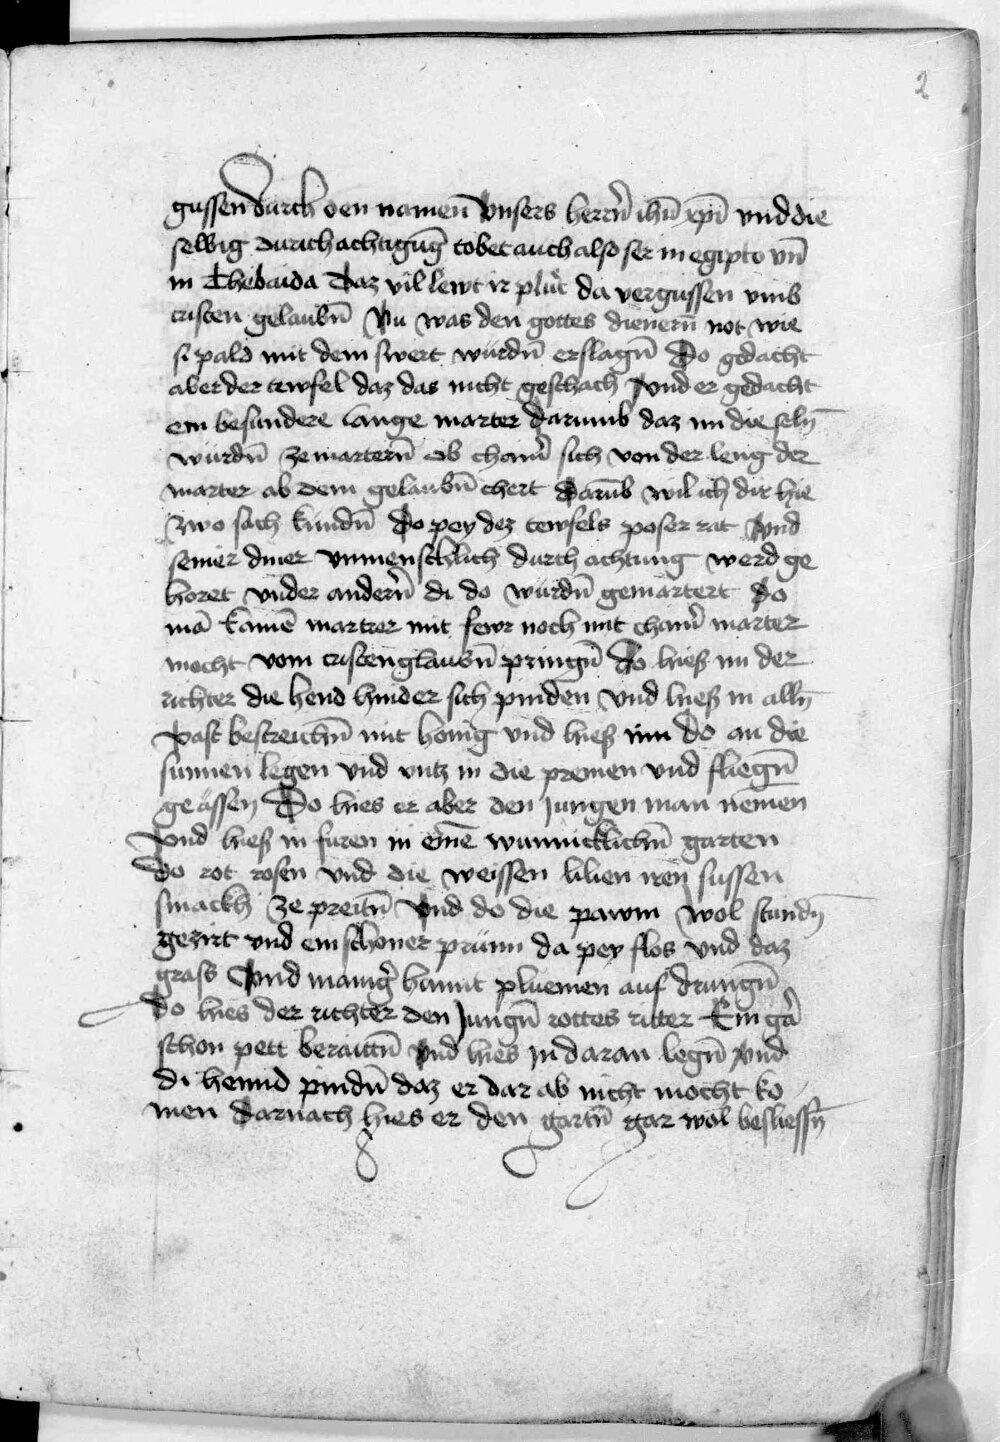 2
gussen durch den namen̄ Vnsers herrn̄ ihū xp̄i vnd die
selbig durichachtigūg tobet auch also ser in egipto vn̄
in Thebaida Daz vil lewt ir plut da vergussen vmb
cristen gelaubn̄ Nu was den gottes dienern̄ not wie
si pald mit dem swert wurdn̄ erslagn̄ Do gedacht
aber der tewfel daz das nicht geschach Vnd er gedacht
ein besundere lange marter darumb daz im die seln̄
wurdn̄ ze martern̄ Ob cham̄ sich von der leng der
marter ab dem gelaubn̄ chert Darūb wil ich dir hie
zwo sach kundn̄ Do pey dez tewfels poser rat Vnd
seiner diner vnmenschlich durch achtung werd ge
horet vnder andern̄ di do wurdn̄ gemartert Do
mā kainē martrer mit fewr noch mit cham̄ marter
mocht vom cristenglaubn̄ pringn̄ Do hieß im der
richter die hend hinder sich pinden Vnd hieß in alln̄
vast bestreichn̄ mit honig vnd hieß inn do an die
sunnen legen vnd vntz in die premen vnd fliegn̄
geässen Do hies er aber den jungen man nemen
Vnd hieß in furen in einē wunnicklichn̄ garten
Do rot rosen vnd die weissen lilien iren sussen
smackh ze preitn̄ Vnd do die pawm wol stundn̄
gezirt vnd ein schoner prunn da pey flos vnd daz
grass Vnd manig̉ hannt pluemen auf drungn̄
Do hies der richter den jungn̄ rottes ritter Ein gar
schon pett beraittn̄ Vnd hies in daran legn̄ Vnd
di hennd pindn̄ daz er dar ab nicht mocht ko
men Darnach hies er den gartn̄ gar wol besliessn̄